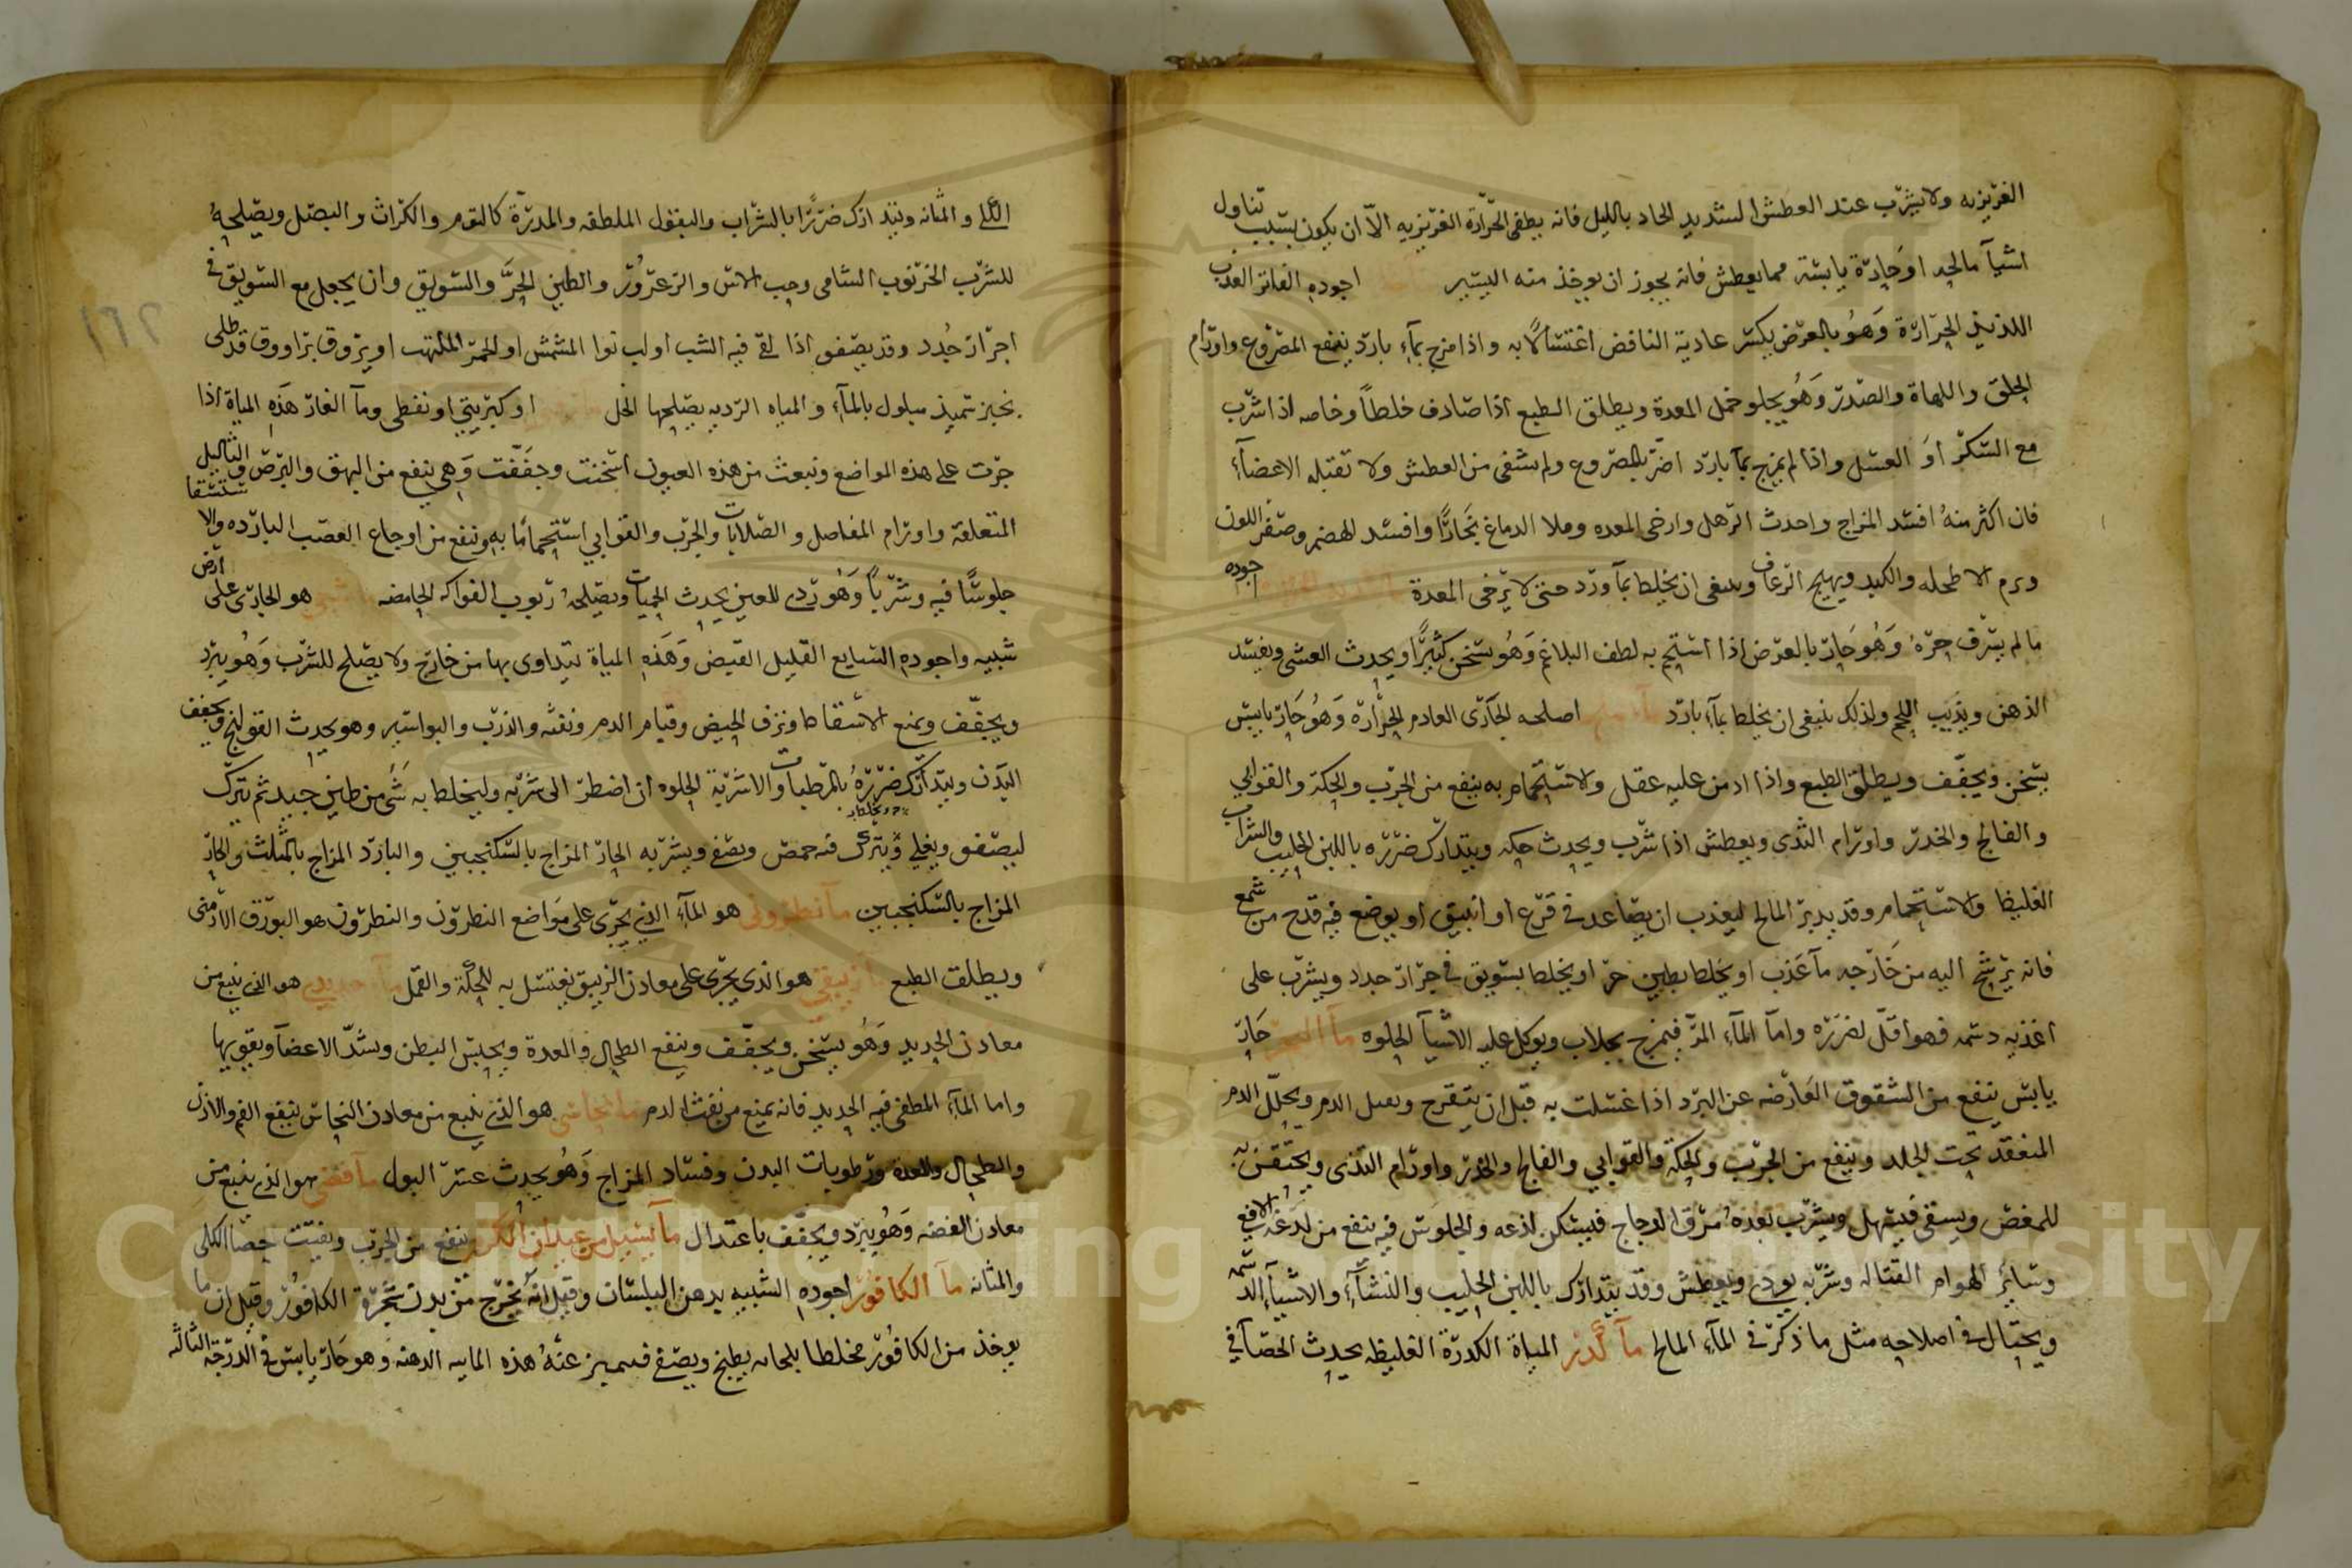 الغريزيه ولا يشرب عند العطش الشديد الحاد بالليل فانه يطفى الحرارة الغريزيه الا ان يكون بسبب تناول
اشيآ مالحه او حارة يابسة مما يعطش فانه يجوز ان يوخذ منه اليسير اجوده الفاتر العذب
اللذيذ الحرارة وهو بالعرض يكسر عادية النافض اغتسالا به واذا مزج بمآء بارد ينفع المصروع واورام
الحلق واللهاة والصدر وهو يجلو خمل المعدة ويطلق الطبع اذا صادف خلطا وخاصه اذا شرب
مع السكر او العسل واذا لم يمزج بمآ بارد اضر بالمصروع ولم يشفى من العطش ولا تقبله الاعضآء
فان اكثر منه افسد المزاج واحدث الرهل وارخى المعده وملا الدماغ بخارا وافسد الهضم وصفر اللون
وورم الاطحله والكبد ويهيج الرعاف وينبغى ان يخلط بمآ ورد حتى لا يرخى المعدة اجوده
ما لم يسرف حره وهو حار بالعرض اذا استحم به لطف البلاغم وهو يسخن كثيرا ويحدث الغشى ويفسد
الذهن ويذيب اللحم ولذلك ينبغى ان يخلط بمآء بارد اصلحه الجارى العادم الحرارة وهو حار يابس
يسخن ويجفف ويطلق الطبع واذا ادمن عليه عقل والاستحمام به ينفع من الجرب والحكة والقوابي
والفالج والخدر واورام الثدى ويعطش اذا شرب ويحدث حكه ويتدارك ضرره باللبن الحليب والشراب
الغليظ والاستحمام وقد يدبر المالح ليعذب ان يصاعد فى قرع او انبيق او يوضع فيه قدح من شمع
فانه يرشح اليه من خارجه مآ عذب او يخلط بطين حر او يخلط بسويق فى جرار جدد ويشرب على
اغذيه دسمه فهو اقل لضرره واما المآء المر فيمزج بجلاب ويوكل عليه الاشيآ الحلوه مآ البحر حار
يابس ينفع من الشقوق العارضه عن البرد اذا غسلت به قبل ان يتقرح ويقتل ويحلل الدم
المنعقد تحت الجلد وينفع من الجرب والحكة والقوابي والفالج والخدر واورام الثدى ويحتقن به
للمغص ويسقى فيسهل ويشرب بعده مرق الدجاج فيسكن لذعه والجلوس فيه ينفع من لدغة الافعى
وسائر الهوام القتاله وشربه يوذى ويعطش وقد يتدارك باللبن الحليب والنشآء والاشيآء الدسمه
ويحتال فى اصلاحه مثل ما ذكر فى المآء المالح مآ كدر المياة الكدرة الغليظه يحدث الحصآ في
الكلى والمثانه ويتدارك ضررها بالشراب والبقول الملطفه والمدرة كالثوم والكراث والبصل ويصلحه
للشرب الخرنوب الشامى وحب الاس والزعرور والطين الحر والسويق وان يجعل مع السويق في
اجرار جدد وقد يصفو اذا القى فيه الشب او لب نوا المشمش او الجمر الملتهب او يروق براووق قد طلى
بخبز سميذ مبلول بالمآء والمياه الرديه يصلحها الخل او كبريتي او نفطى ومآ الغار هذه المياة اذا
جرت على هذه المواضع ونبعث من هذه العيون اسخنت وجففت وهى ينفع من البهق والبرص والثاليل
المتعلقة واورام المفاصل والصلابات والجرب والقوابي استحماما به وينفع من اوجاع العصب البارده والاستسقا
جلوسا فيه وشربا وهو ردى للعين يحدث الحميات ويصلحه ربوب الفواكه الحامضه هو الجارى على ارض
شبيه واجوده السايع القليل القبض وهذه المياة يتداوى بها من خارج ولا يصلح للشرب وهو يبرد
ويجفف ويمنع الاسقاط ونزف الحيض وقيام الدم ونفثه والذرب والبواسير وهو يحدث القولنج ويجفف
البدن ويتدارك ضرره بالمرطبات والاشربة الحلوه ان اضطر الى شربه وليخلط به شى من طين جيد ثم يترك
ليصفو ويغلى ويترك فيه حمص ويصفى ويشربه الحار المزاج بالسكنجبين والبارد المزاج بالمثلث والحار
المزاج بالسكنجبين مآ نطرونى هو المآء الذي يجرى على مواضع النطرون والنطرون هو البورق الارمنى
ويطلق الطبع مآ زيبقي هو الذى يجرى على معادن الزيبق يغتسل به للحكة والقمل مآ حديدى هو الذى ينبع من
معادن الحديد وهو يسخن ويجفف وينفع الطحال والمعدة ويحبس البطن ويشد الاعضآ ويقويها
واما المآء المطفى فيه الحديد فانه يمنع من نفث الدم مآ نحاسي هو الذى ينبع من معادن النحاس ينفع الفم والاذن
والطحال والمعدة ورطوبات البدن وفساد المزاج وهو يحدث عسر البول مآ فضى هو الذى ينبع من
معادن الفضه وهو يبرد ويجفف باعتدال مآ يسيل من عيدان الكرم ينفع من الجرب ويفتت حصا الكلى
والمثانه مآ الكافور اجوده الشبيه بدهن البلسان وقيل انه يخرج من بدن شجرة الكافور وقيل ان ما
يوخذ من الكافور مخلطا بلحاه يطبخ ويصفى فيميز عنه هذه المايه الدهنه وهو حار يابس في الدرجة الثالثه
١٦٢
Copyright © King Saud University